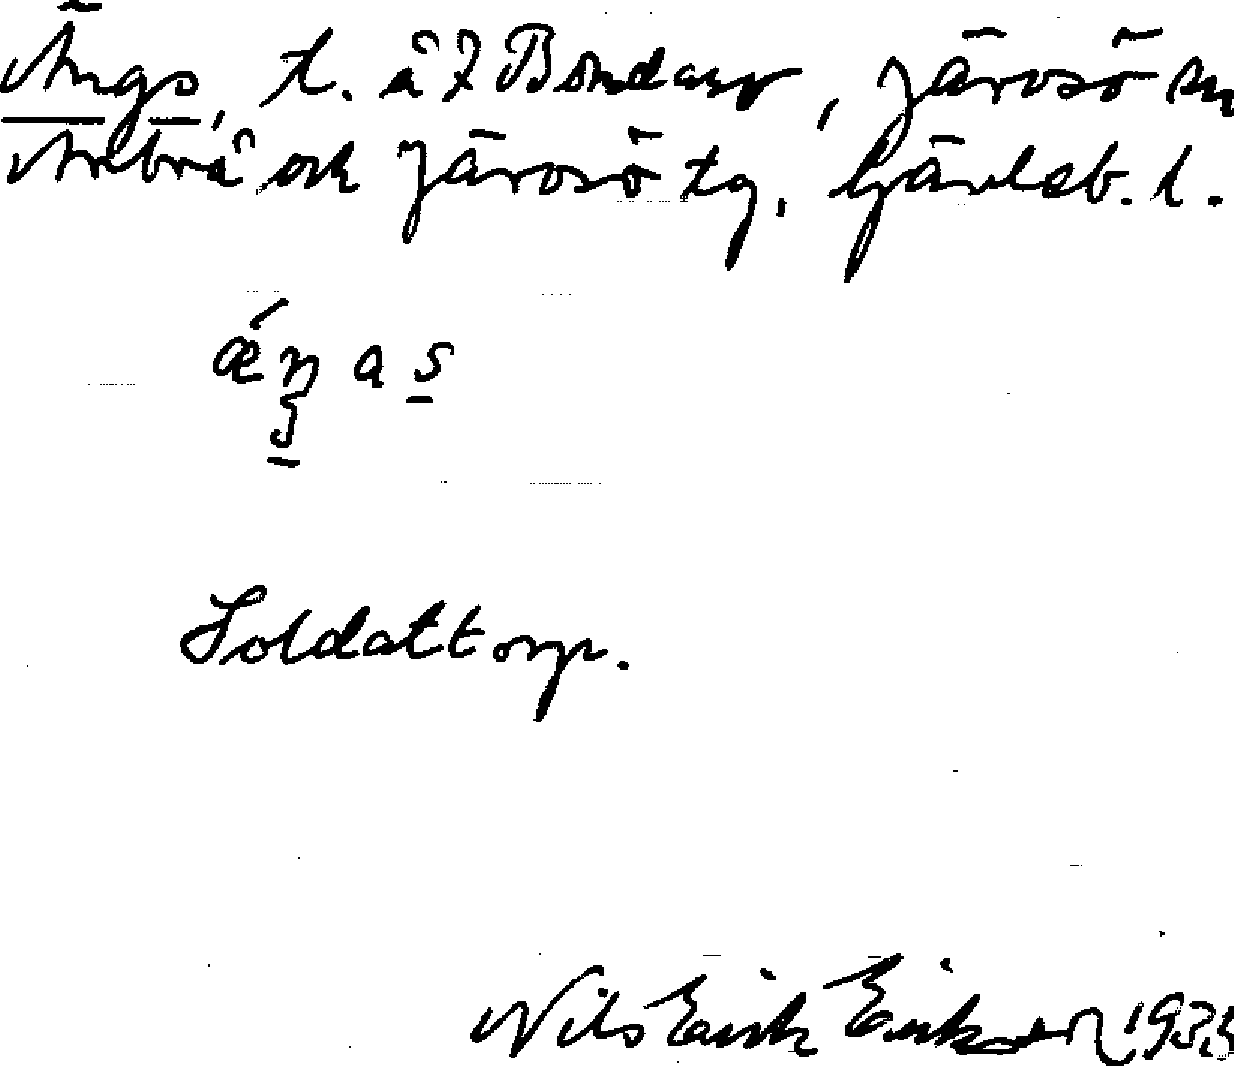 Ängs, t. å 7 Bondarv, Järvsö sn
Arbrå och Järvsö tg, Gävleb. l.
Soldattorp.
Nils Erik Eriksson 1935